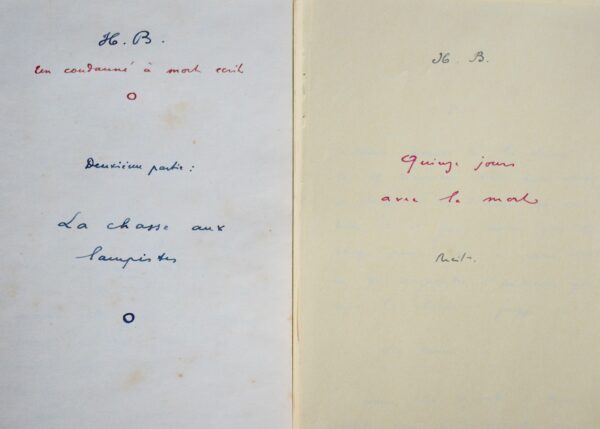 H. B.
Un condamné à mort écrit
Deuxième partie :
La chasse aux
lampistes
H. B.
Quinze jours
avec la mort
Récit.